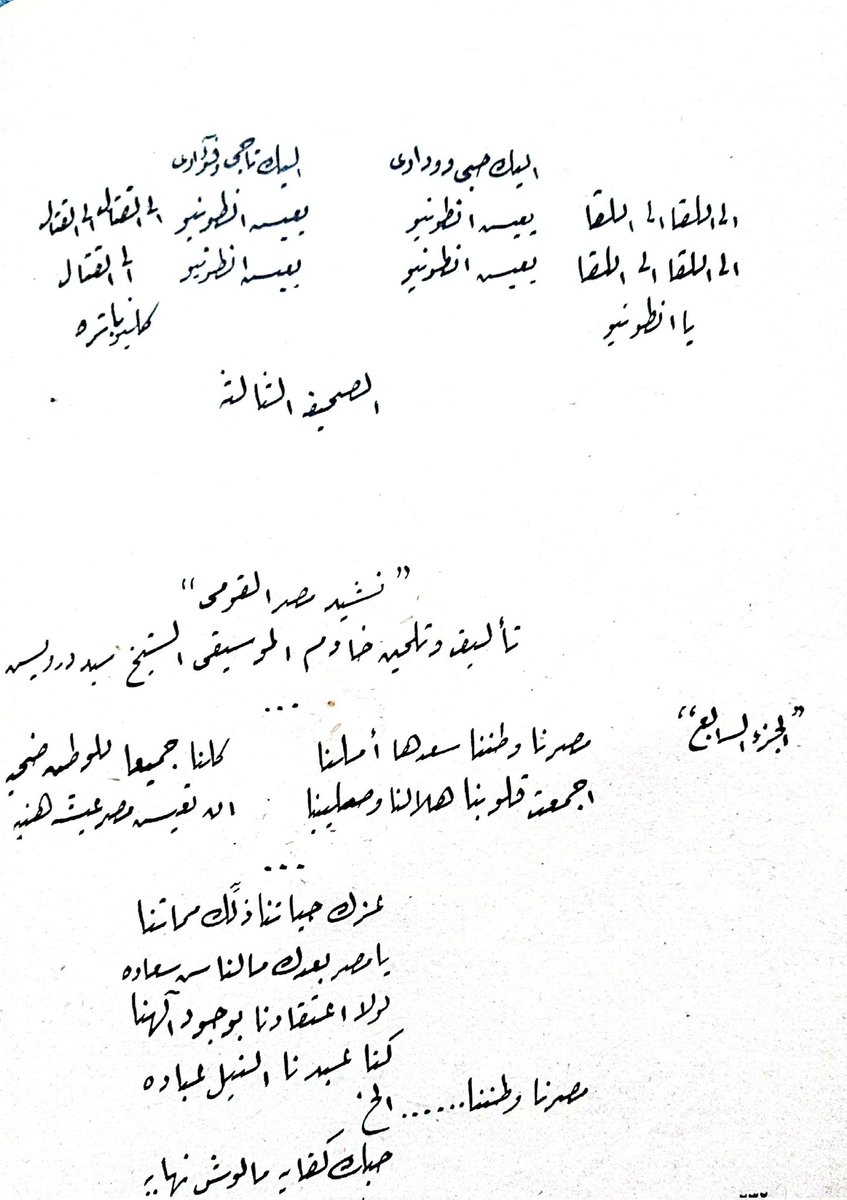 اليك حبى وودادى    اليك تاجى وفؤادى
الى اللقا الى اللقا    يعيش انطونيو    يعيش انطونيو    الى القتال الى القتال
الى اللقا الى اللقا    يعيش انطونيو    يعيش انطونيو    الى القتال
يا انطونيو    كليوباتره
الصحيفه الثالثه
"نشيد مصر القومى"
تأليف وتلحين خادم الموسيقى الشيخ سيد درويش
...
"الجزء السابع"
مصرنا وطننا سعدها أملنا    كلنا جميعا للوطن ضحيه
اجمعت قلوبنا هلالنا وصليبنا    ان تعيش مصر عيشه هنيه
...
عزك حياتنا ذلك مماتنا
يا مصر بعدك مالناس سعاده
لولا اعتقادنا بوجود آلهنا
كنا عبدنا النيل عباده
مصرنا وطننا...... الخ
حبك كفايه مالوش نهايه